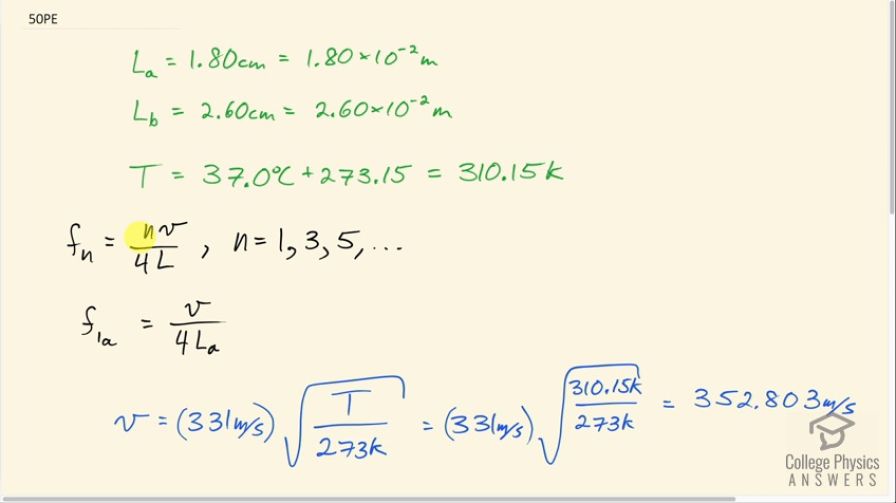 50PE
Lₐ = 1.80cm = 1.80×10⁻² m
L_b = 2.60cm = 2.60×10⁻² m
T = 37.0°C + 273.15 = 310.15 k
fₙ = nv/4L , n = 1, 3, 5, ...
f₁ₐ = v/4Lₐ
v = (331 m/s) √(T/273k) = (331 m/s) √(310.15k/273k) = 352.803 m/s
College Physics
ANSWERS